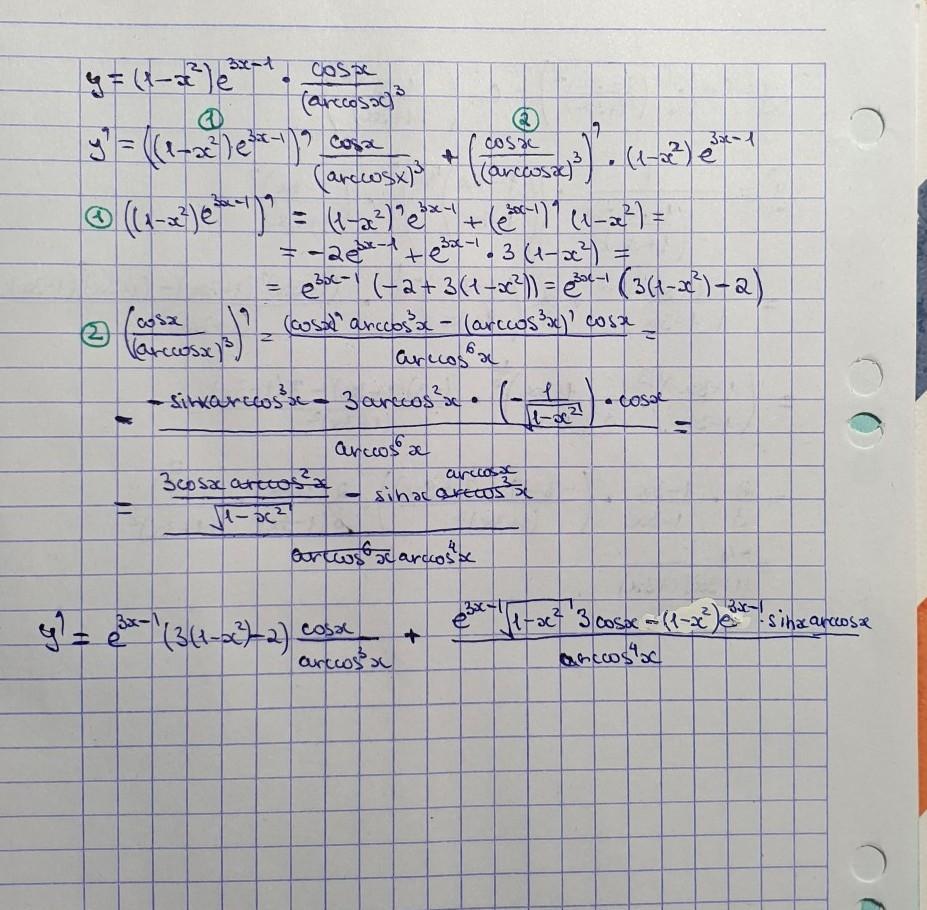 y = (1-x²)e^{3x-1} · \frac{cosx}{(arccosx)³}
① ②
y' = ((1-x²)e^{3x-1})' \frac{cosx}{(arccosx)³} + (\frac{cosx}{(arccosx)³})' · (1-x²) e^{3x-1}
① ((1-x²)e^{3x-1})' = (1-x²)' e^{3x-1} + (e^{3x-1})' (1-x²) =
= -2e^{3x-1} + e^{3x-1} · 3(1-x²) =
= e^{3x-1} (-2+3(1-x²)) = e^{3x-1} (3(1-x²)-2)
② (\frac{cosx}{(arccosx)³})' = \frac{(cosx)' arccos³x - (arccos³x)' cosx}{arccos⁶x} =
= \frac{-sinx arccos³x - 3arccos²x · (-\frac{1}{\sqrt{1-x²}}) · cosx}{arccos⁶x} =
= \frac{\frac{3cosx arccos²x}{\sqrt{1-x²}} - sinx arccos³x arccosx}{arccos⁶x arccos⁴x}
y' = e^{3x-1} (3(1-x²)-2) \frac{cosx}{arccos³x} + \frac{e^{3x-1}\sqrt{1-x²} 3cosx - (1-x²)e^{3x-1} · sinx arccosx}{arccos⁴x}